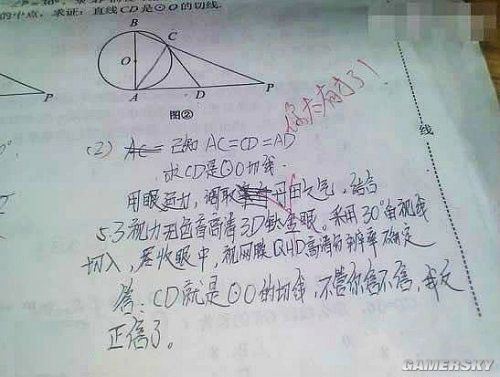 的中点，求证：直线CD是⊙O的切线.
B
C
O
A
D
P
P
图②
你太有才了！
(2) 已知 AC=CD=AD
求CD是⊙O切线.
用眼 调取丹田之气，结合
5.3视力 高清3D钛金眼。采用30°角视线
切入，尽收眼中，视网膜QHD高清分辨率确定
答：CD就是⊙O的切线，不管你信不信，我反
正信了。
线
GAMERSKY